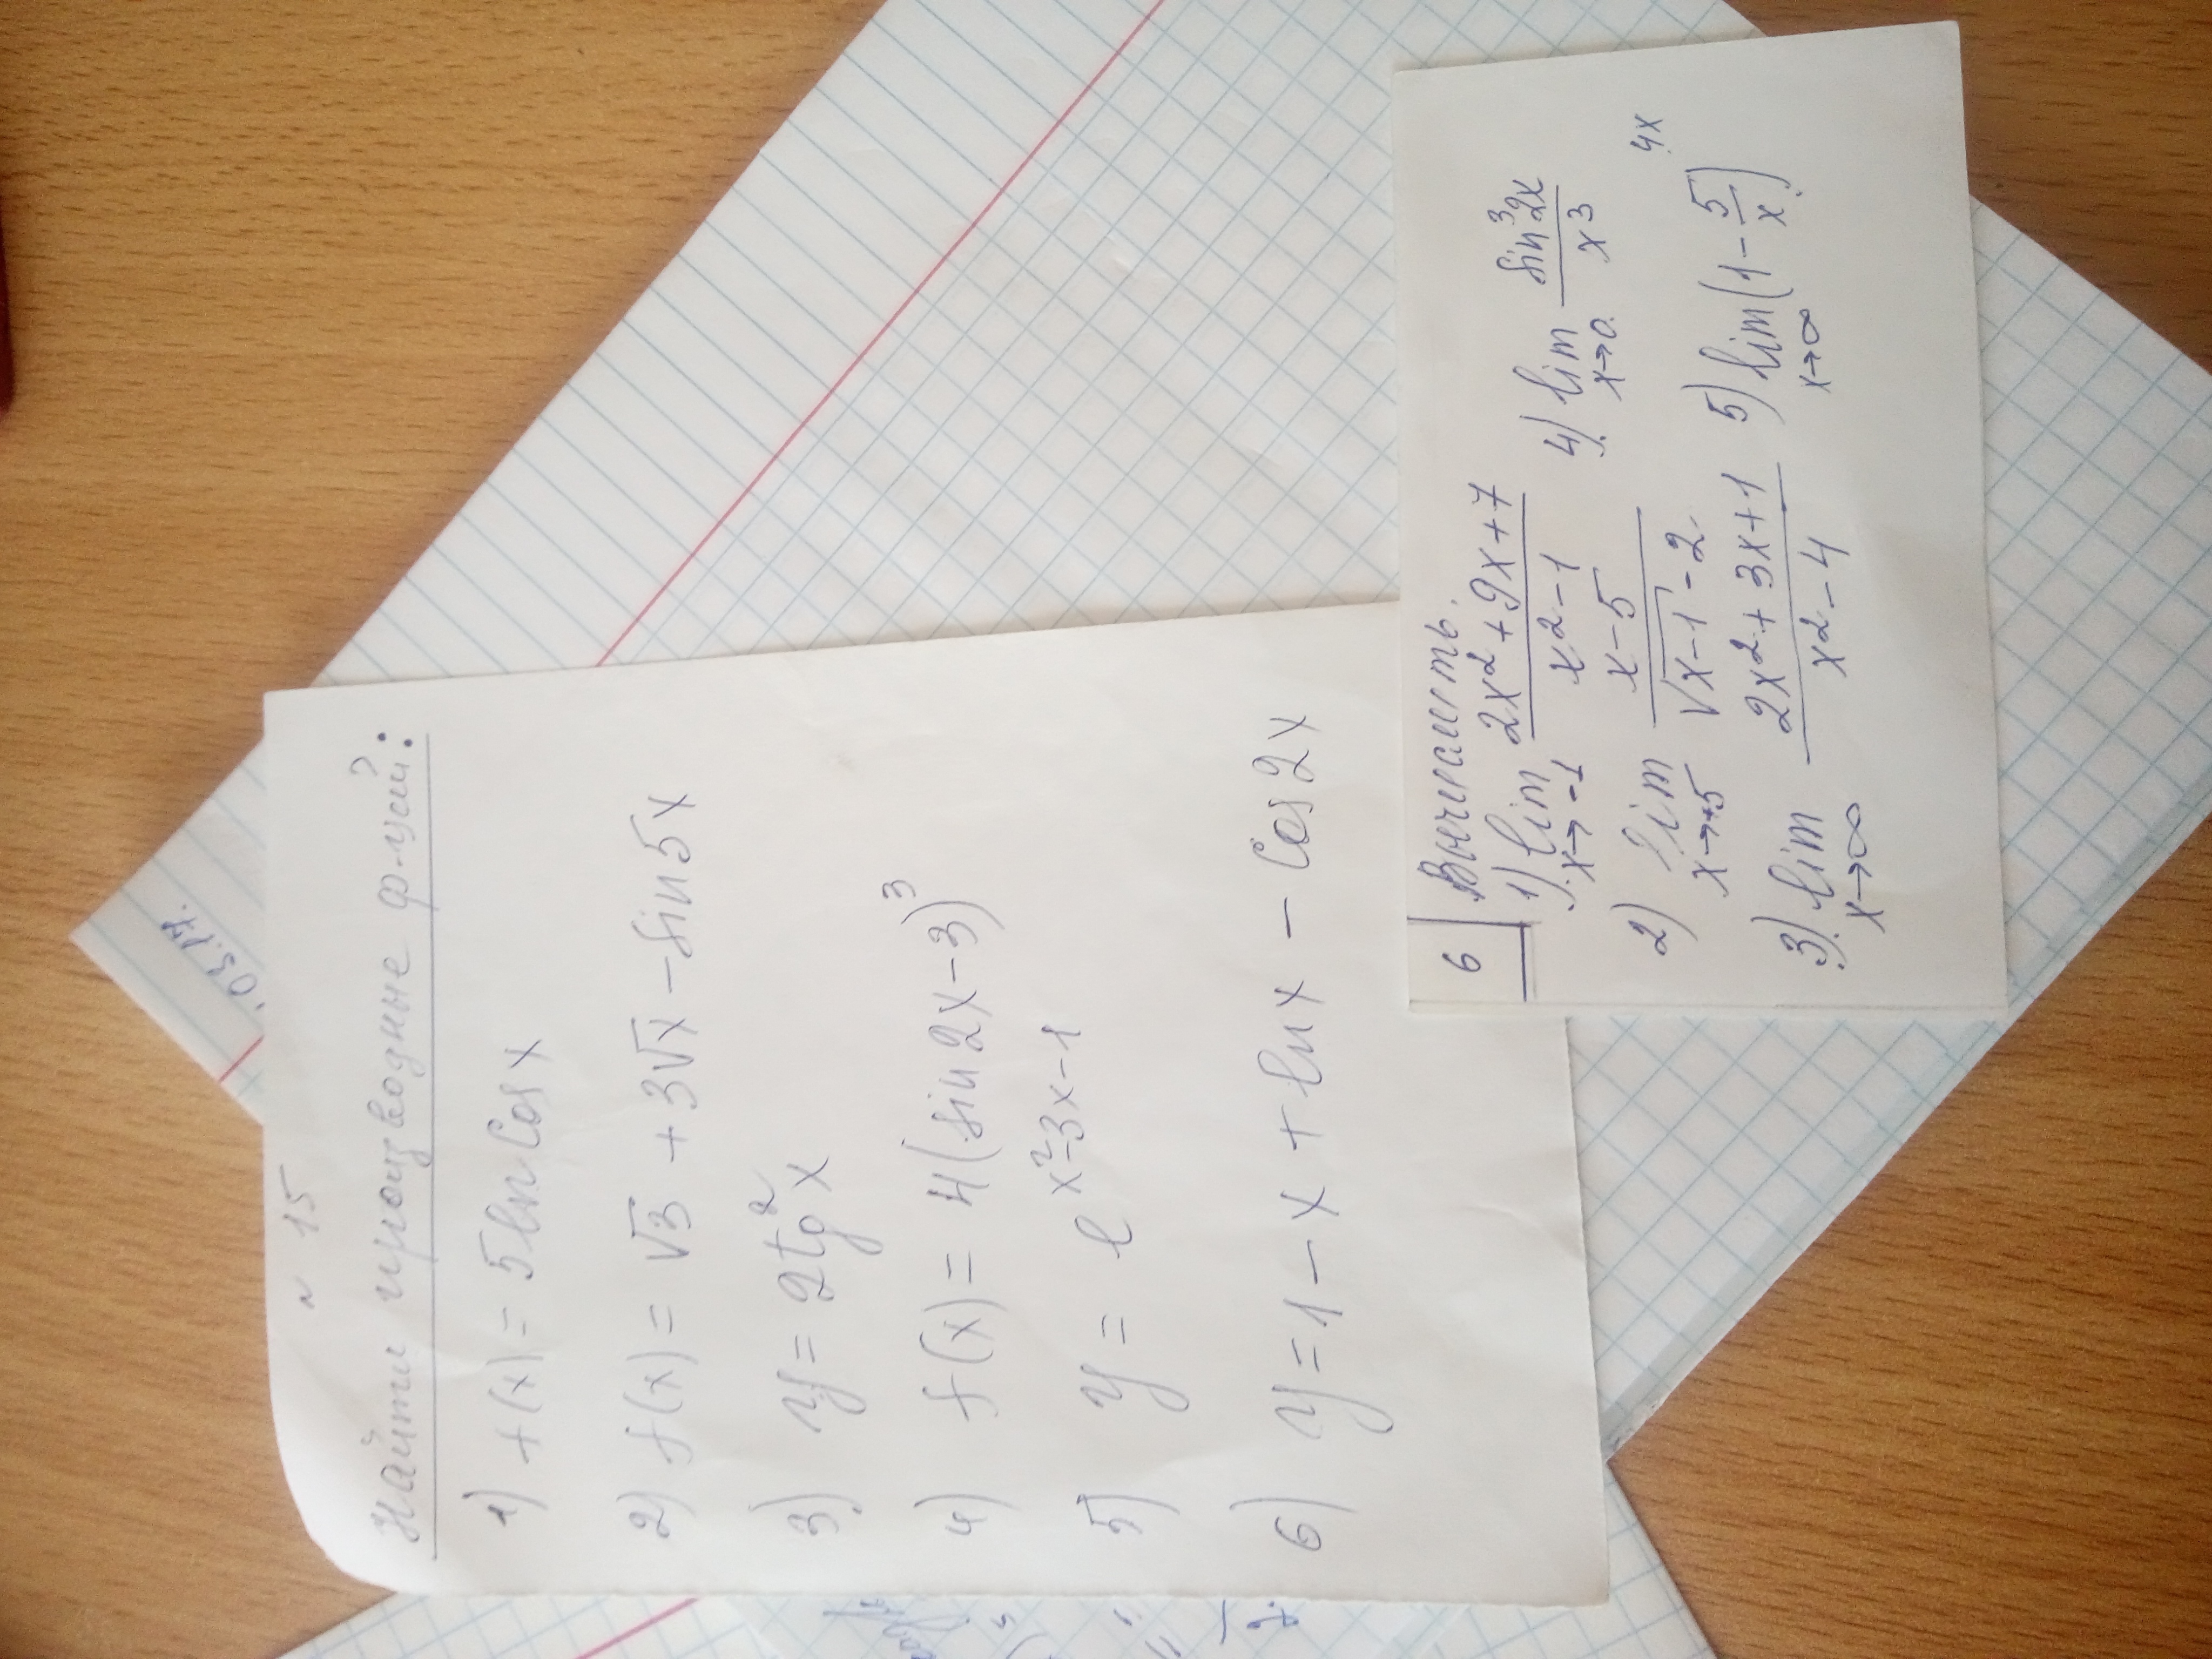 N 15
Найти производные ф-ций:
1) f(x) = 5 ln Cos x
2) f(x) = √3 + 3√x - sin 5x
3) y = 2tg²x
4) f(x) = 4(sin 2x - 3)³
5) y = e^(x²-3x-1)
6) y = 1 - x + ln x - Cos 2x
6 Вычислить.
1) lim x→-1 (2x² + 9x + 7)/(x² - 1)
2) lim x→+5 (x - 5)/(√(x-1) - 2)
3) lim x→∞ (2x² + 3x + 1)/(x² - 4)
4) lim x→0 (sin³2x)/(x³)
5) lim x→∞ (1 - 5/x)^(4x)